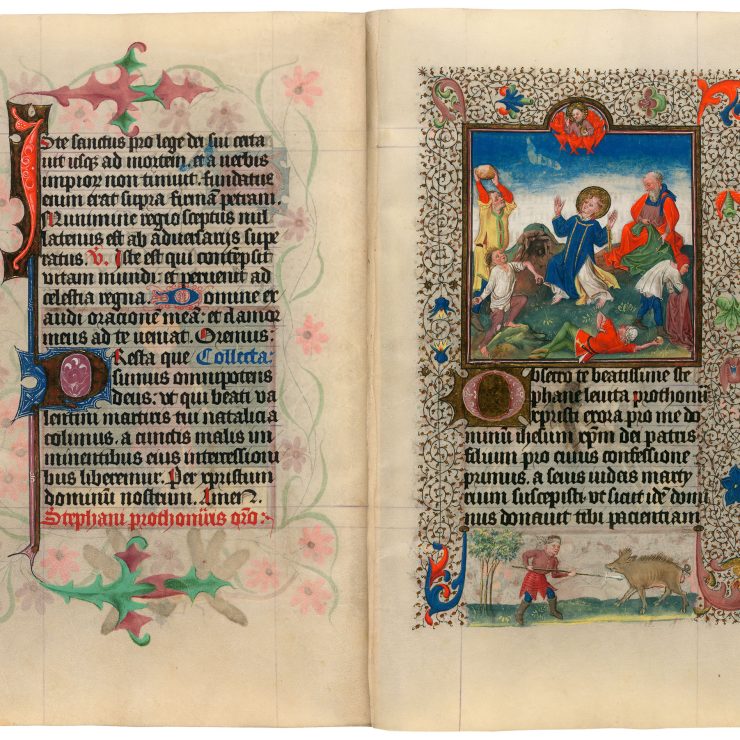 Iste sanctus pro lege dei sui certa
uit usqꝫ ad mortem. et a uerbis
impior non timuit. fundatus
enim erat supra firmam petram.
Munimine regio sceptus nul
latenus est ab aduersarijs supe
ratus. V. Iste est qui contempsit
uitam mundi: et peruenit ad
celestia regna. Domine ex
audi orationem meã: et clamor
meus ad te ueniat. Oremus:
Presta que Collecta
sumus omnipotens
deus: ut qui beati va
lentini martiris tui natalicia
colimus. a cunctis malis im
minentibus eius intercessioni
bus liberemur. Per xpristum
dominũ nostrum. Amen.
Stephani prothom̃ris orõ:
Obsecro te beatissime ste
phane leuita prothom̃
xpristi exora pro me do
minũ ihesum xp̃m dei patris
filium pro cuius confessione
primus. a seuis iudeis marty
rium suscepisti. vt sicut idẽ domi
nus donauit tibi pacientiam